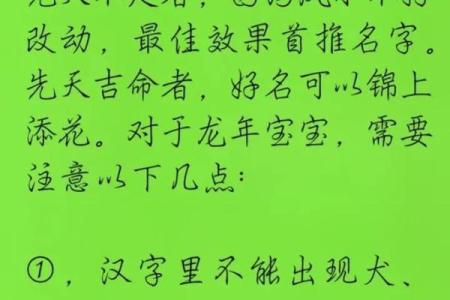 改动，最佳效果首推名字。
先天吉命者，好名可以锦上
添花。对于龙年宝宝，需要
注意以下几点：
①，汉字里不能出现犬、